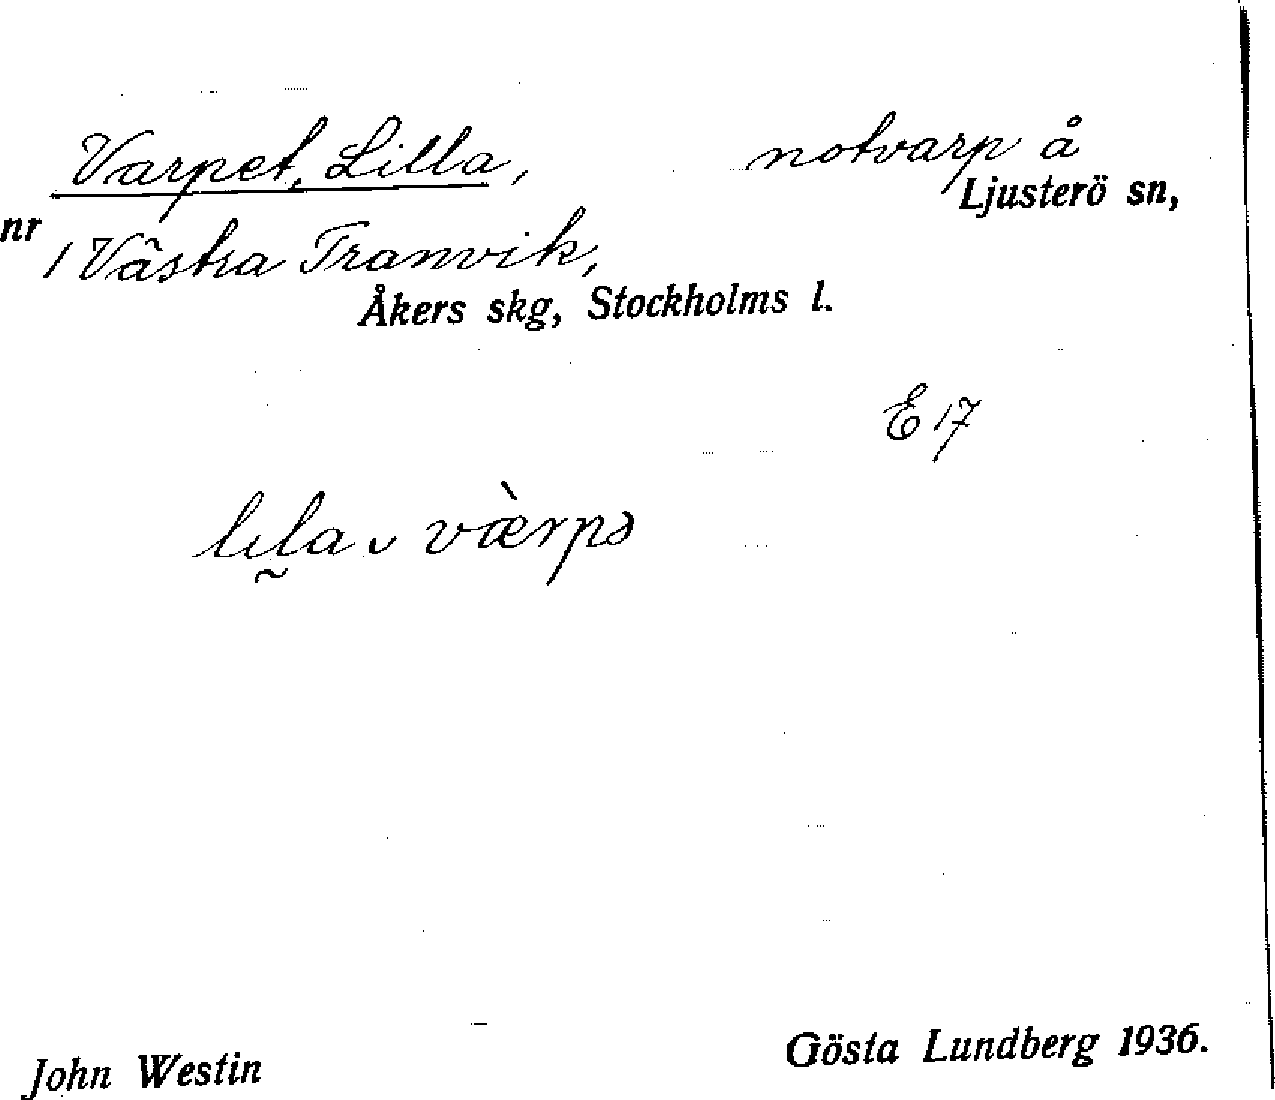 Varpet, Lilla, notvarp å
Ljusterö sn,
nr 1 Västra Tranvik,
Åkers skg, Stockholms l.
E 17
lıla ᴗ væ̀rpə
John Westin Gösta Lundberg 1936.